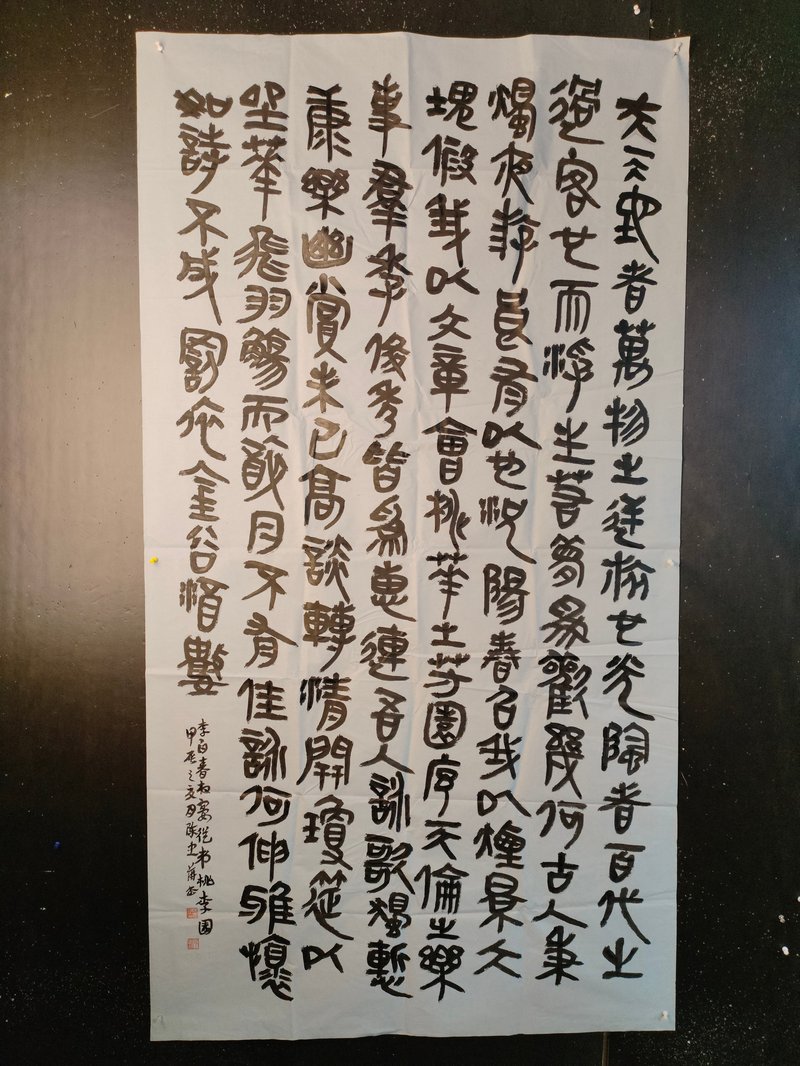 夫天地者萬物之逆旅也光陰者百代之
過客也而浮生若夢爲歡幾何古人秉
燭夜遊良有以也況陽春召我以煙景大
塊假我以文章會桃華之芳園序天倫之樂
事羣季俊秀皆爲惠連吾人詠歌獨慙
康樂幽賞未已高談轉清開瓊筵以
坐華飛羽觴而醉月不有佳詠何伸雅懷
如詩不成罰依金谷酒數
李白春夜宴從弟桃李園
甲辰之月陳